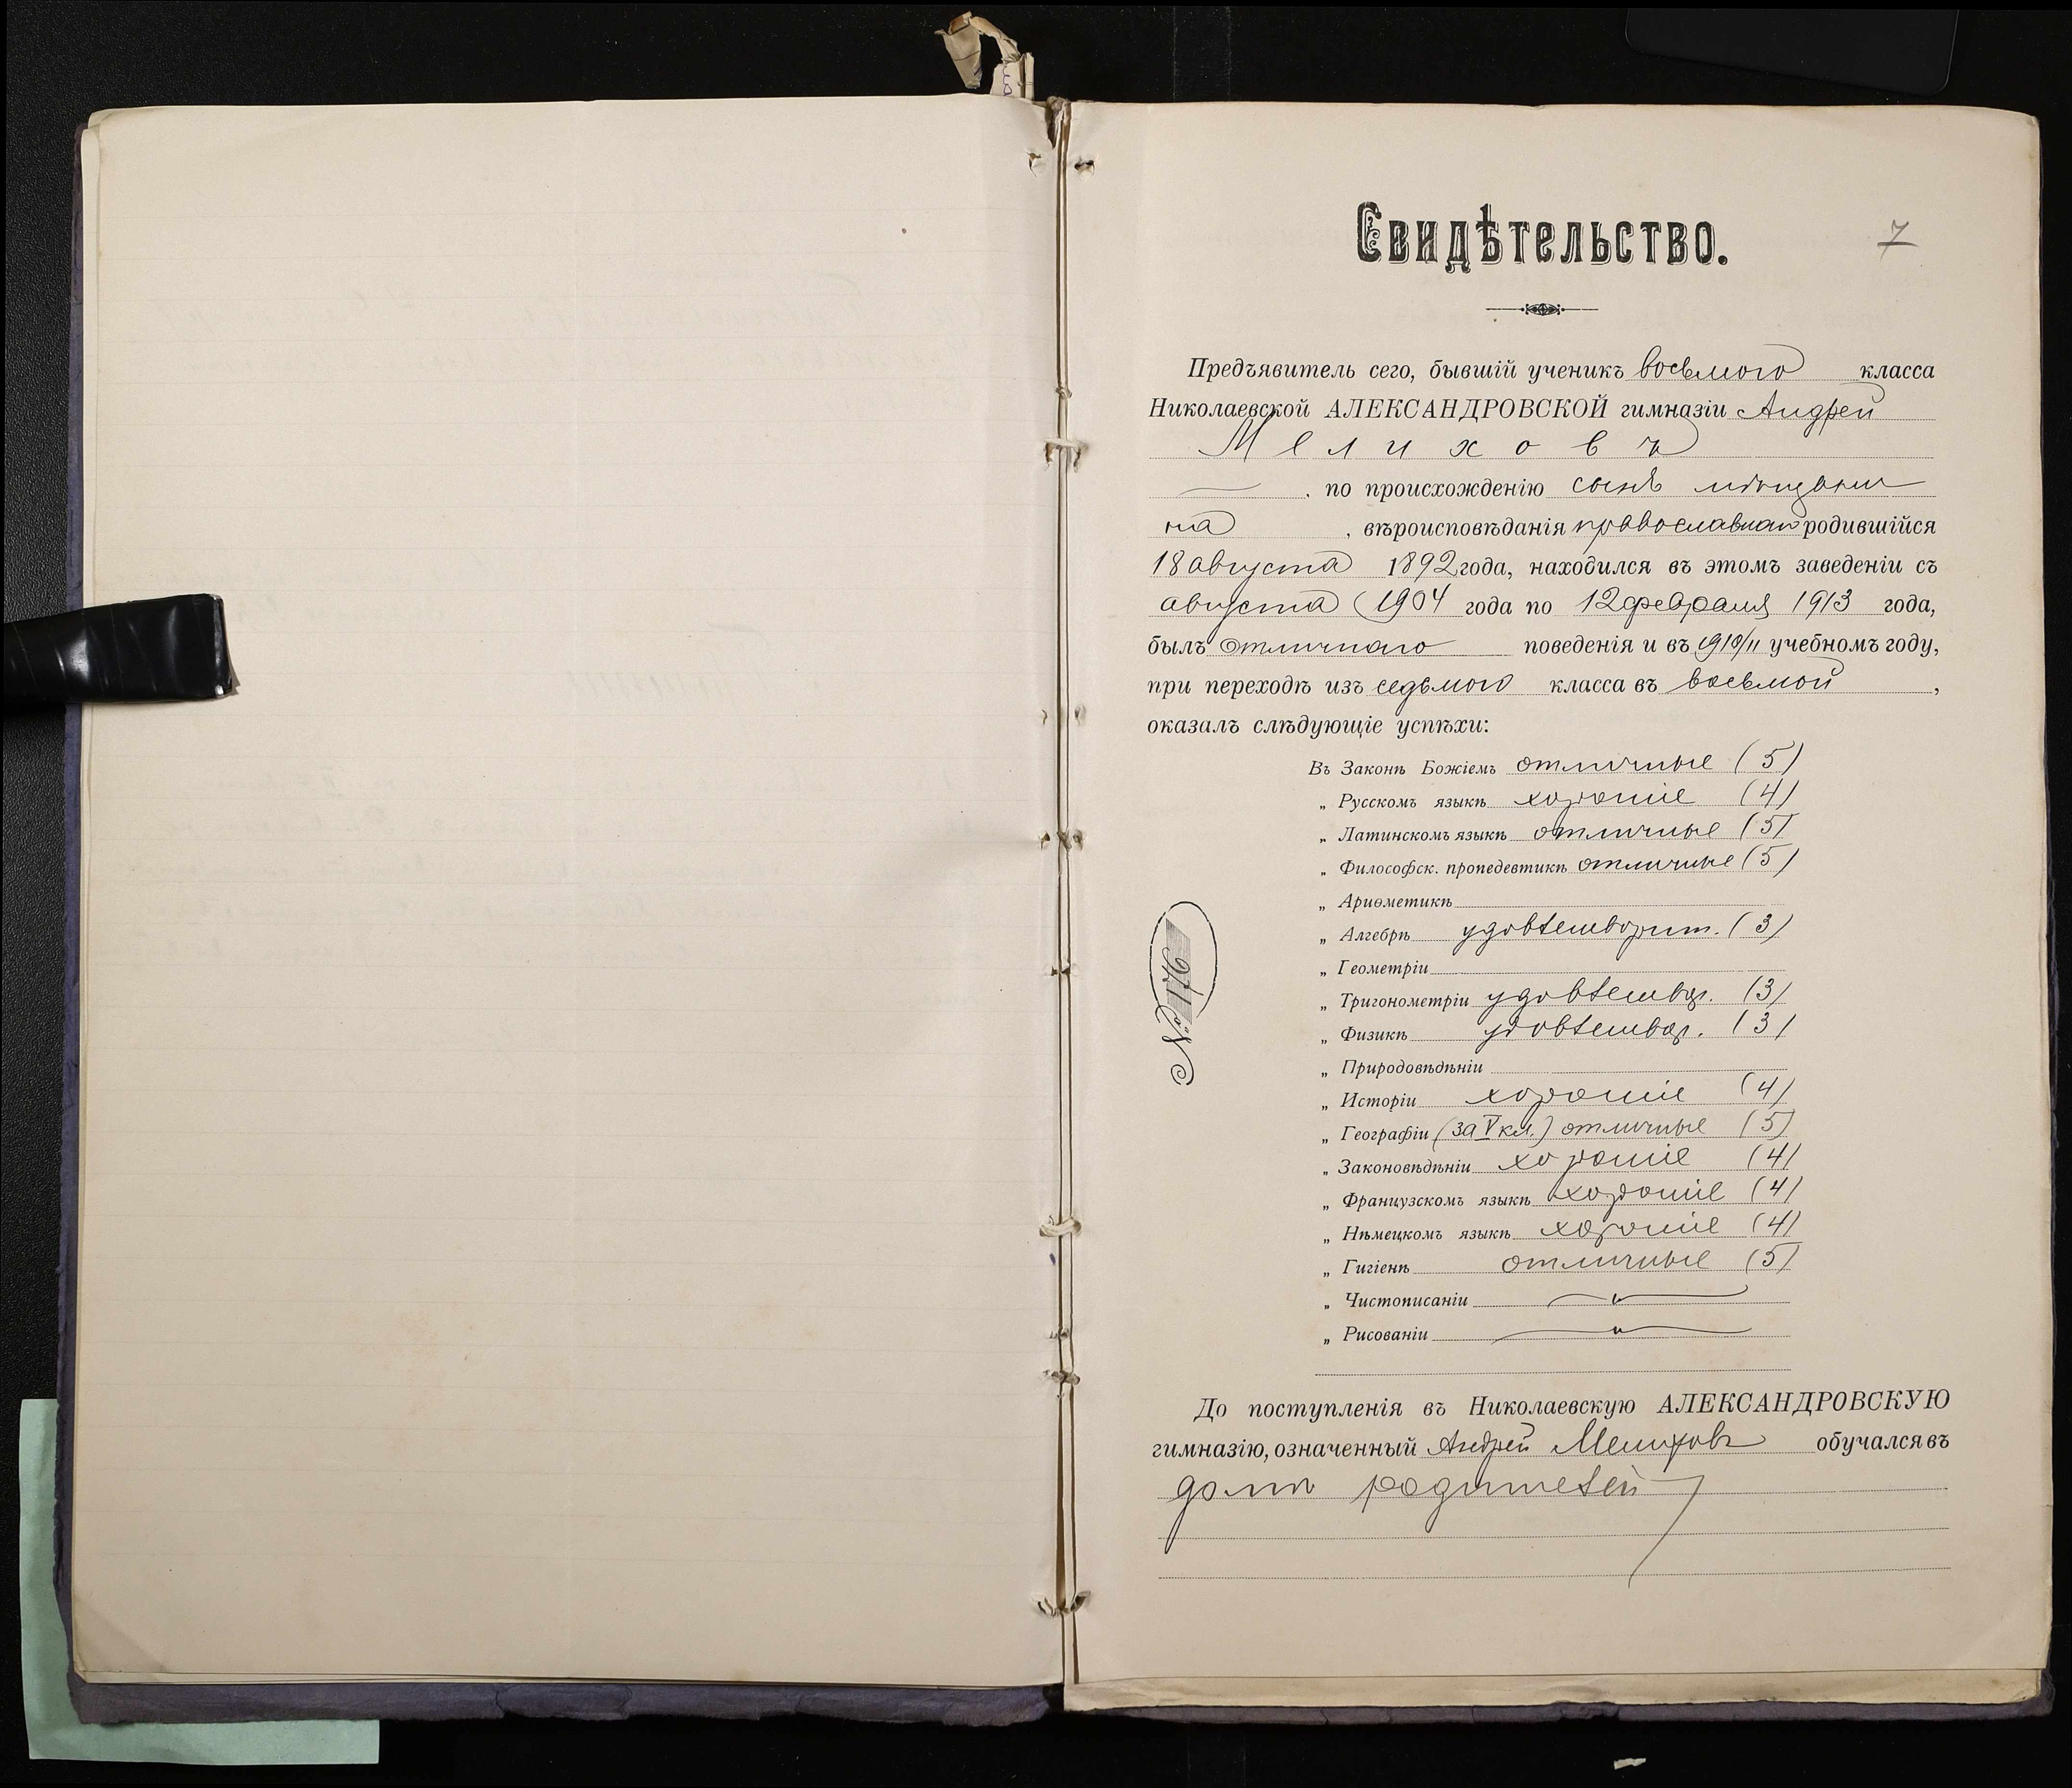 Свидѣтельство.
7
Предъявитель сего, бывшій ученикъ восьмого класса
Николаевской АЛЕКСАНДРОВСКОЙ гимназіи Андрей
Мелиховъ
по происхожденію сынъ мѣщани
на, вѣроисповѣданія православнаго родившійся
18 августа 1892 года, находился въ этомъ заведеніи съ
августа 1904 года по 12 февраля 1913 года,
былъ отличнаго поведенія и въ 1910/11 учебномъ году,
при переходѣ изъ седьмого класса въ восьмой,
оказалъ слѣдующіе успѣхи:
Въ Законѣ Божіемъ отличные (5)
„ Русскомъ языкѣ хорошіе (4)
„ Латинскомъ языкѣ отличные (5)
„ Философск. пропедевтикѣ отличные (5)
„ Ариѳметикѣ
„ Алгебрѣ удовлетворит. (3)
„ Геометріи
„ Тригонометріи удовлетвор. (3)
„ Физикѣ удовлетвор. (3)
„ Природовѣдѣніи
„ Исторіи хорошіе (4)
„ Географіи (за V кл.) отличные (5)
„ Законовѣдѣніи хорошіе (4)
„ Французскомъ языкѣ хорошіе (4)
„ Нѣмецкомъ языкѣ хорошіе (4)
„ Гигіенѣ отличные (5)
„ Чистописаніи
„ Рисованіи
№
До поступленія въ Николаевскую АЛЕКСАНДРОВСКУЮ
гимназію, означенный Андрей Мелиховъ обучался въ
домѣ родителей